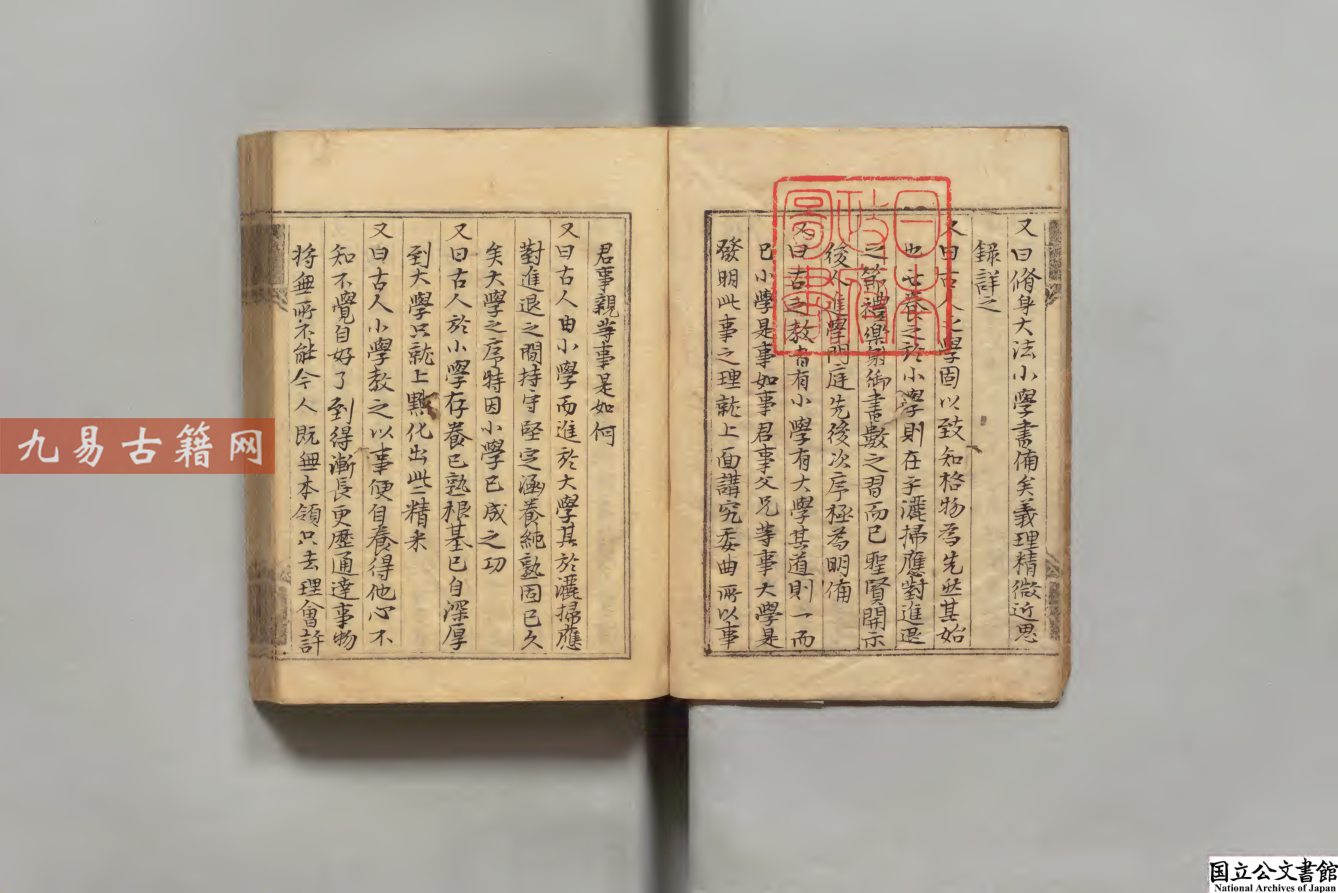 又曰脩身大法小學書備矣義理精微近思
錄詳之
又曰古人之學固以致知格物為先然其始
也必養之於小學則在乎灑掃應對進退
之節禮樂射御書數之習而已聖賢開示
後人進學門庭先後次序極為明備
又曰古之教者有小學有大學其道則一而
已小學是事如事君事父兄等事大學是
發明此事之理就上面講究委曲所以事
君事親等事是如何
又曰古人由小學而進於大學其於灑掃應
對進退之間持守堅定涵養純熟固已久
矣大學之序特因小學已成之功
又曰古人於小學存養已熟根基已自深厚
到大學只就上點化出此二精来
又曰古人小學教之以事便自養得他心不
知不覺自好了到得漸長更歷通達事物
将無所不能今人既無本領只去理會許
日本政府圖書
九易古籍网
国立公文書館
National Archives of Japan